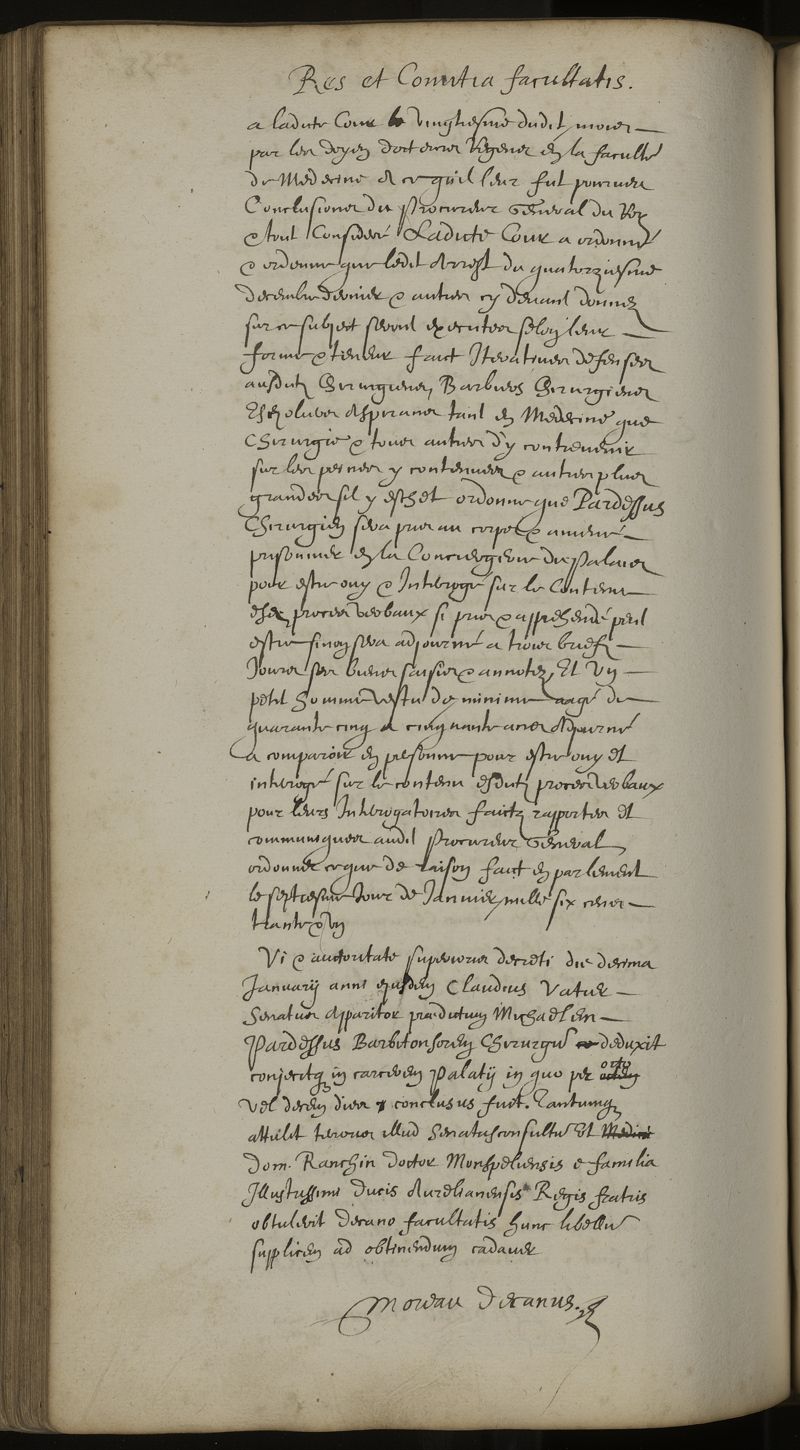 Res et Comitia facultatis.
a ladicte Cour le vingtiesme dudit mois
par les doyen docteurs Regens en la faculté
de Medecine & ce qu'il leur fut pourveu
Conclusions du Procureur General du Roy
& tout Consideré Ladicte Cour a ordonné
& ordonne que ledit Arrest du quatorziesme
decembre dernier & autres cy devant donnez
sur ce subject seront executes selon leur
forme & teneur faict Iteratives defenses
ausdictz Chirurgiens, Barbiers Chirurgiens
Escoliers aspirans tant en Medecine que
Chirurgie & tous autres d'y contrevenir
sur les peines y contenues & autres plus
grandes sil y eschet ordonne que Pardessus
Chirurgien sera pris au corps & amené
prisonnier en la Conciergerie du Palais
pour estre ouy & Interrogé sur le Contenu
esdz proces verbaux si pris & apprehendé peut
estre sinon sera adjourné a trois briefz
Jours ses biens saisis & annotez, Et Un
petit homme vestu de minime aagé de
quarante cinq a cinquante ans Adjourné
a comparoir en personne pour estre ouy et
interrogé sur le contenu esdictz proces verbaux
pour leurs Interrogatoires faictz rapportes et
communiques audit Procureur General
ordonner ce que de raison faict en parlement
le septiesme Jour de Janvier, mille six cens
trente & un
Vi & auctoritate superioris decreti die decima
Januarij anni ejusdem Claudius Vatier
Senatus Apparitor praedictum Michaelem
Pardessus Barbitonsorem Chirurgū deduxit
conjecitq in carcerem Palatij in quo per octo
vel decem dies conclusus fuit. Tantumq
attulit terroris illud Senatusconsultū Ut
Dom. Ranchin doctor Monspeliensis e familia
Illustrissimi ducis Aurelianensis Regis fratris
obtulerit decano facultatis hunc libellū
supplicem ad obtinendum cadaver
Moreau Decanus.